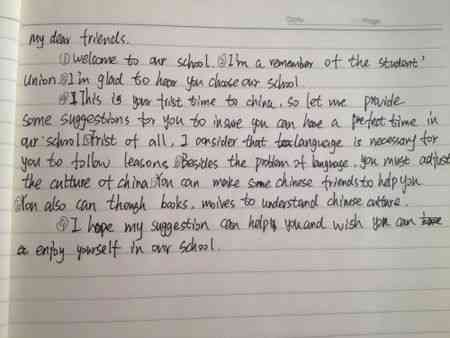 Date Page
My dear friends.
①Welcome to our school. ②I'm a remember of the student'
Union. ③I'm glad to hear you choose our school.
④This is your frist time to china, so let me provide
some suggestions for you to insure you can have a prefect time in
our school. ⑤Frist of all, I consider that language is necessary for
you to follow leasons. ⑥Besides the problem of language, you must adjust
the culture of china. ⑦You can make some chinese friends to help you
⑧You also can though books, moives to understand chinese culture.
⑨I hope my suggestion can help you and wish you can
enjoy yourself in our school.